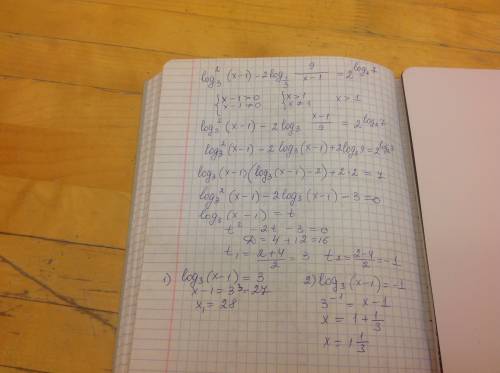 log₃²(x-1)-2log_{1/3} 9/(x-1) = 2^{log₂7}
{x-1>0 {x>1 x>1
{x-1≠0 {x≠1
log₃²(x-1)-2log₃ (x-1)/9 = 2^{log₂7}
log₃²(x-1)-2log₃(x-1)+2log₃9=2^{log₂7}
log₃(x-1)(log₃(x-1)-2)+2·2=7
log₃²(x-1)-2log₃(x-1)-3=0
log₃(x-1)=t
t²-2t-3=0
D=4+12=16
t₁=(2+4)/2=3 t₂=(2-4)/2=-1
1) log₃(x-1)=3
x-1=3³=27
x₁=28
2) log₃(x-1)=-1
3⁻¹=x-1
x=1+1/3
x=1 1/3